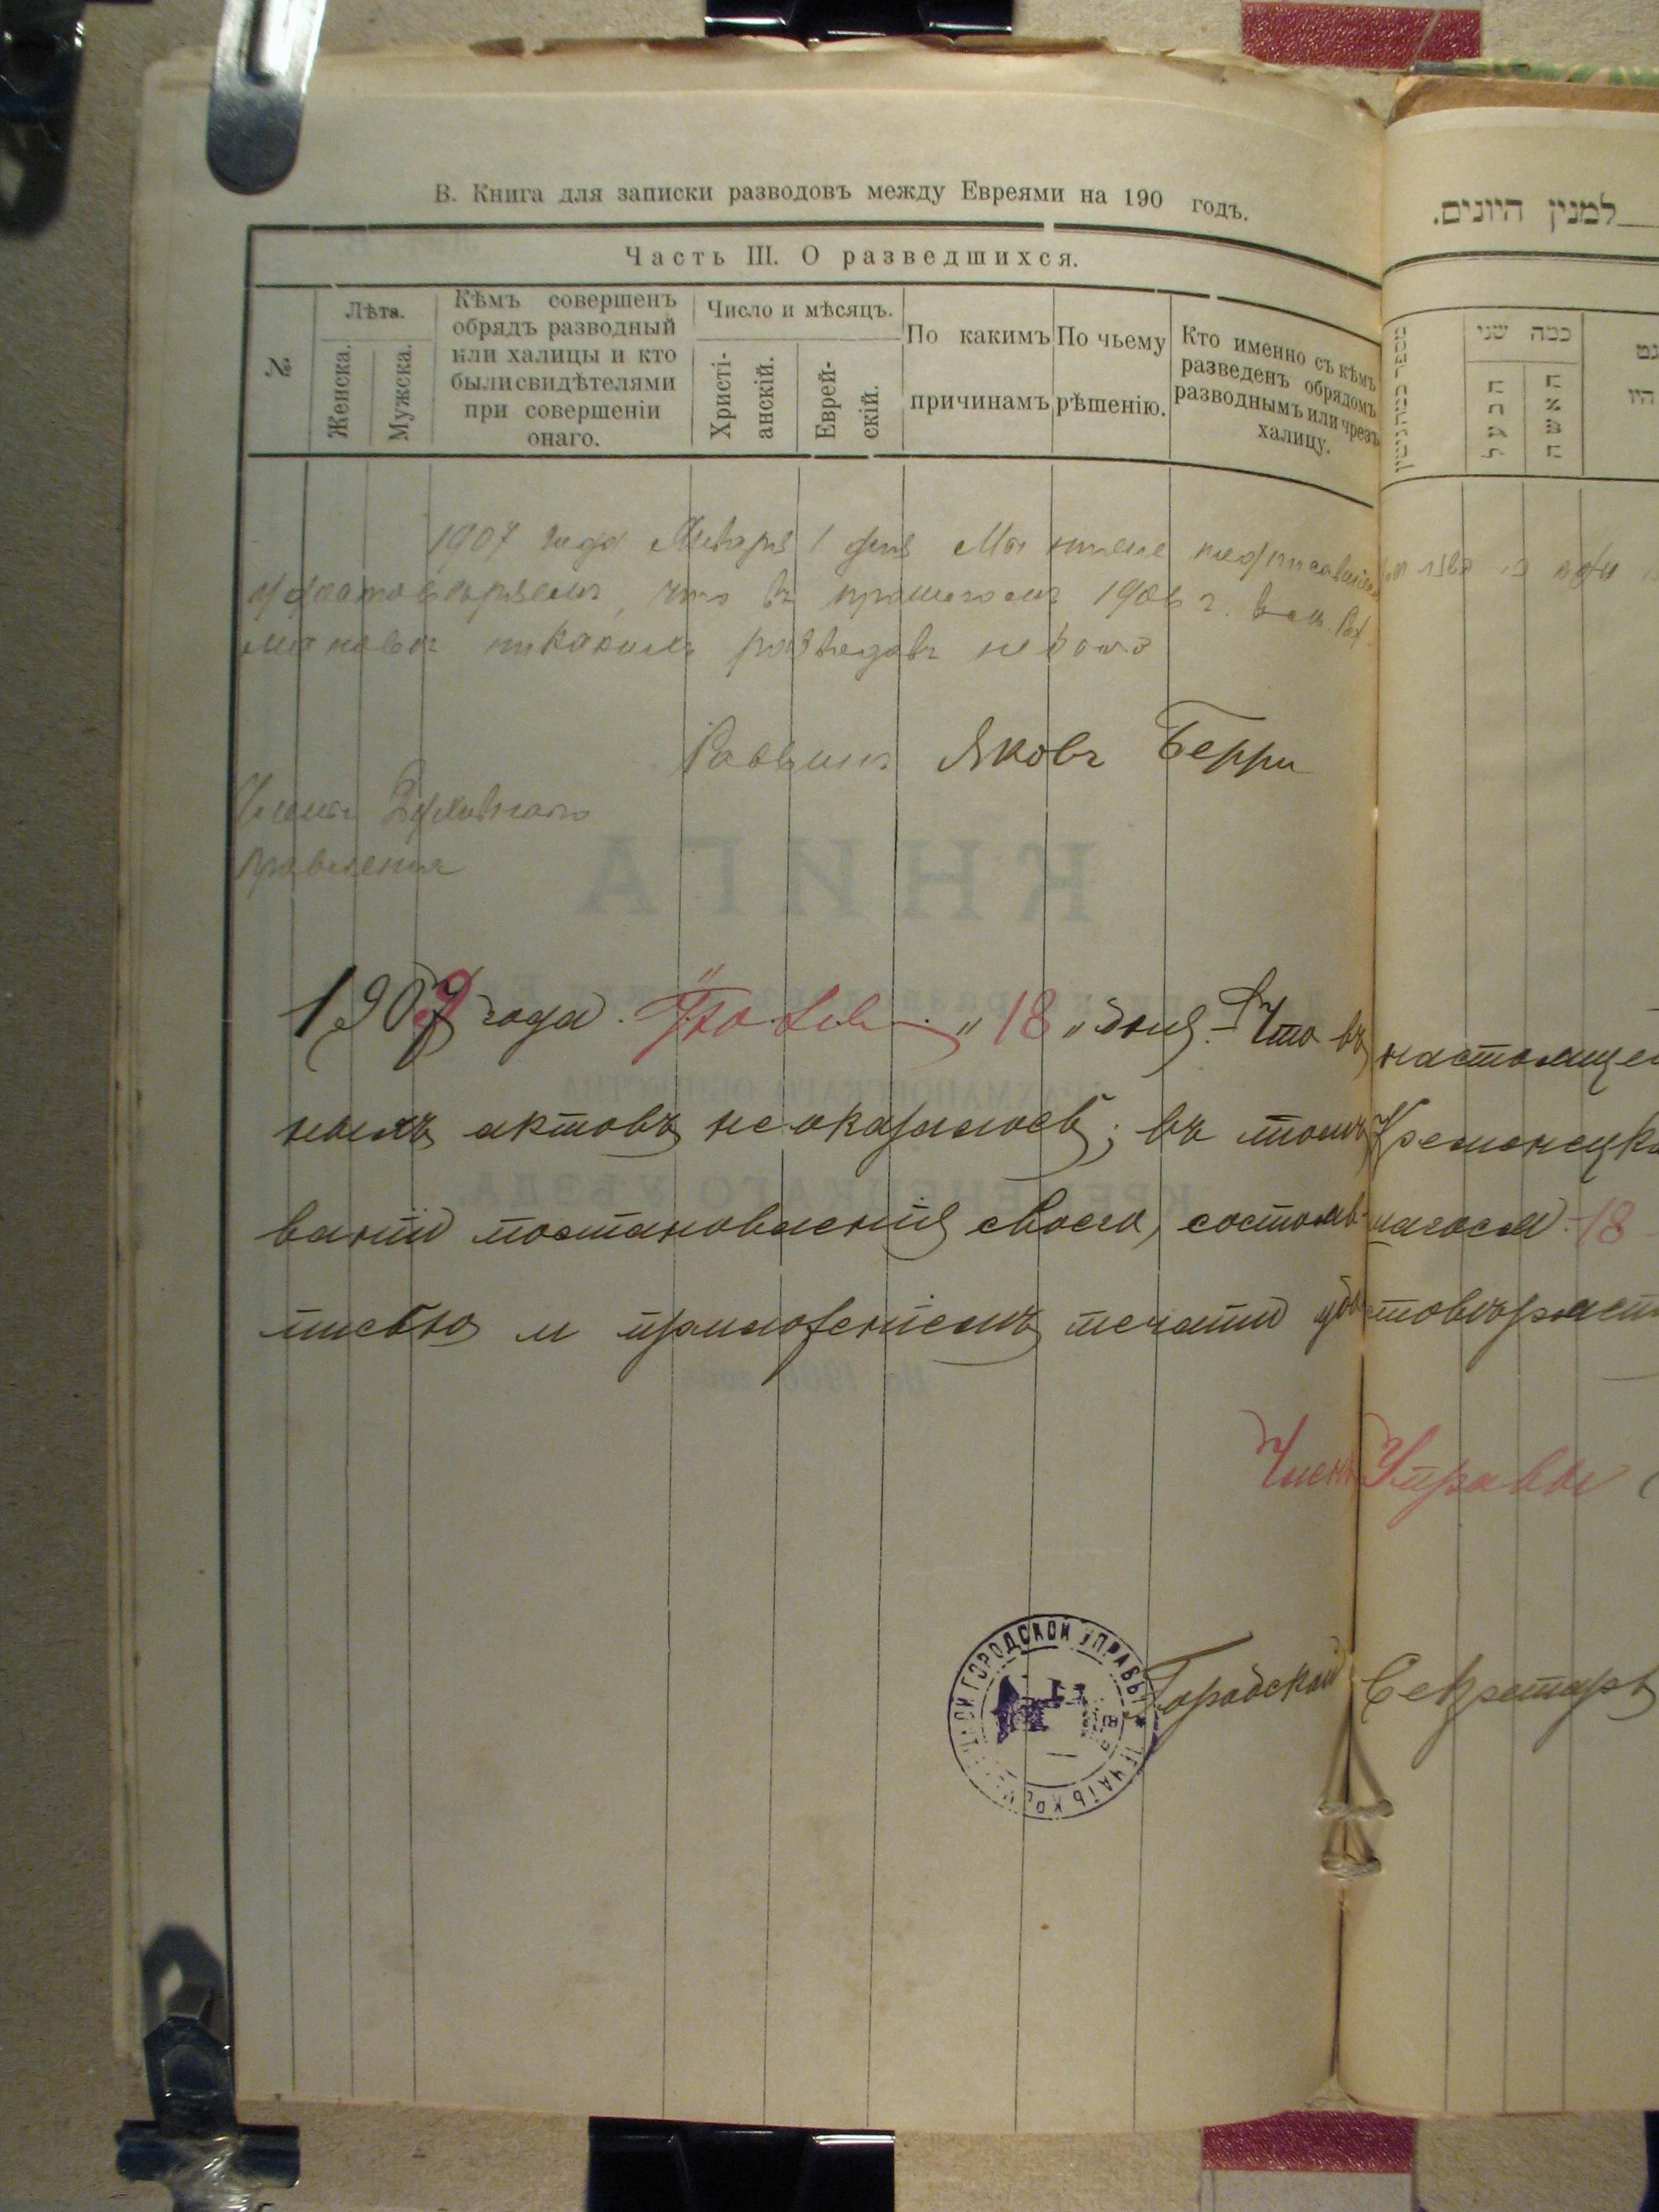 В. Книга для записки разводовъ между Евреями на 190 годъ.
למנין היונים.
Часть III. О разведшихся.
№
Лѣта.
Женска.
Мужска.
Кѣмъ совершенъ
обрядъ разводный
или халицы и кто
были свидѣтелями
при совершеніи
онаго.
Число и мѣсяцъ.
Христі-
анскій.
Еврей-
скій.
По какимъ
причинамъ
По чьему
рѣшенію.
Кто именно съ кѣмъ
разведенъ обрядомъ
разводнымъ или чрезъ
халицу.
כמה שני
הבעל
האשה
1907 года Января 1 дня Мы ниже подписавшіеся
удостовѣряемъ, что въ прошломъ 1906 г. въ м. Рах-
мановкѣ никакихъ разводовъ не было
Раввинъ Яковъ Берри
Члены Духовнаго
Правленія
1907 года " 18 " дня. Что въ настояще
ныхъ актовъ не оказалось; въ томъ Кременецка
ваніи постановленія своего, состоявшагося 18
писью и приложеніемъ печати удостовѣряетъ
Членъ Управы
Городской Секретарь
ГОРОДСКОЙ УПРАВЫ
ПЕЧАТЬ
КНИГА
РАХМАНОВСКАГО ОБЩЕСТВА
КРЕМЕНЕЦКАГО УѢЗДА.
На 1906 годъ